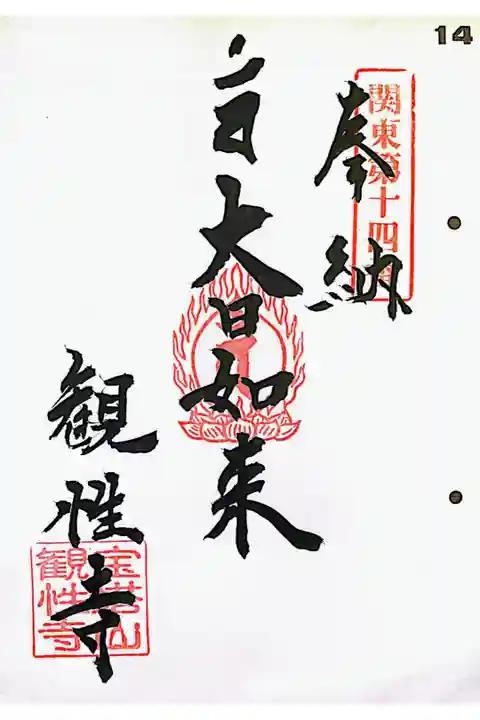 14
関東第十四番
奉納
大日如来
観性寺
宝塔山
観性寺